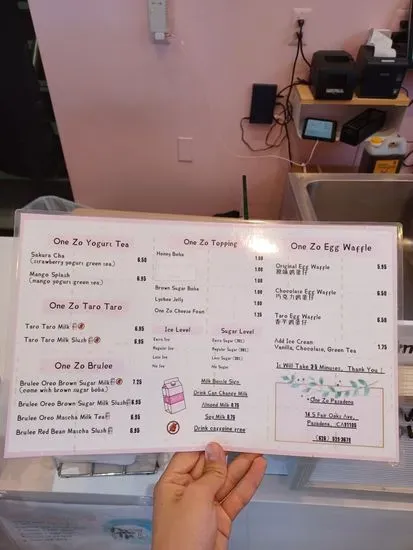 One Zo Yogurt Tea
Sakura Cha 6.50
(strawberry yogurt green tea)
Mango Splash 6.50
(mango yogurt green tea)
One Zo Taro Taro
Taro Taro Milk 6.95
Taro Taro Milk Slush 6.95
One Zo Brulee
Brulee Oreo Brown Sugar Milk 7.25
(come with brown sugar boba)
Brulee Oreo Brown Sugar Milk Slush 6.95
Brulee Oreo Matcha Milk Tea 6.95
Brulee Red Bean Matcha Slush 6.95
One Zo Topping
Honey Boba 1.00
1.00
1.00
Brown Sugar Boba 1.00
Lychee Jelly 1.00
One Zo Cheese Foam 1.25
Ice Level
Extra Ice
Regular Ice
Less Ice
No Ice
Sugar Level
No Sugar
Milk Bottle Sign
Drink Can Change Milk
Almond Milk 0.75
Soy Milk 0.75
Drink caffeine free
One Zo Egg Waffle
Original Egg Waffle 5.95
原味鸡蛋仔
Chocolate Egg Waffle 6.50
巧克力鸡蛋仔
Taro Egg Waffle 6.50
香芋鸡蛋仔
Add Ice Cream:
Vanilla, Chocolate, Green Tea 1.75
Thank You !
One Zo Pasadena
Pasadena, CA91105